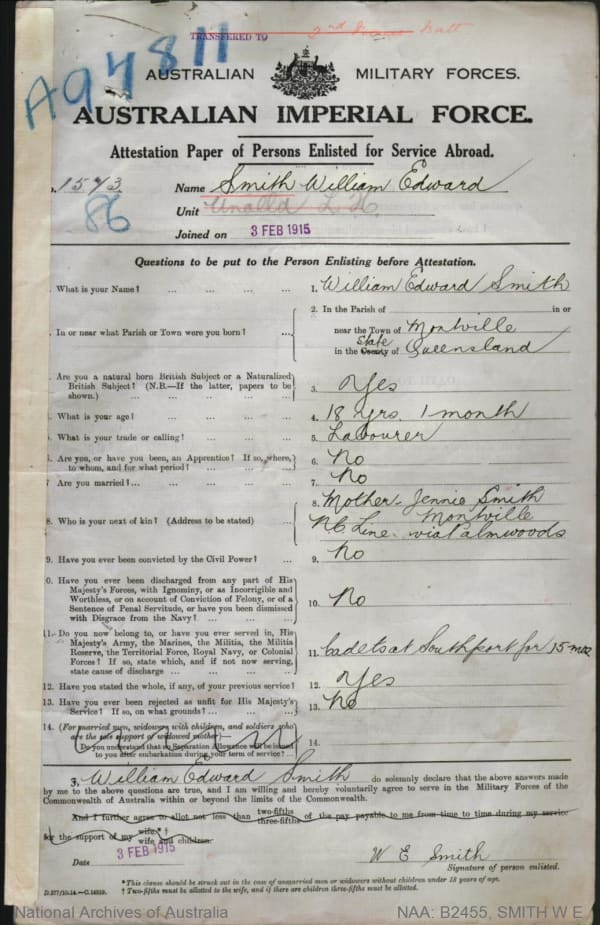 TRANSFERRED TO 2nd
A94811
AUSTRALIAN MILITARY FORCES.
AUSTRALIAN IMPERIAL FORCE.
Attestation Paper of Persons Enlisted for Service Abroad.
1573 Name Smith William Edward
86 Unit Unalld L H.
Joined on 3 FEB 1915
Questions to be put to the Person Enlisting before Attestation.
What is your Name? ... ... ... 1. William Edward Smith
2. In the Parish of in or
In or near what Parish or Town were you born? ... near the Town of Montville
State
in the County of Queensland
Are you a natural born British Subject or a Naturalized
British Subject? (N.B.—If the latter, papers to be 3. Yes
shown.) ... ... ... ...
What is your age? ... ... ... 4. 18 yrs. 1 month
What is your trade or calling? ... ... ... 5. Labourer
Are you, or have you been, an Apprentice? If so, where, 6. No
to whom, and for what period? ... ... ...
Are you married? ... ... ... ... 7. No
8. Mother - Jennie Smith
8. Who is your next of kin? (Address to be stated) ... Montville
N.C. Line. via Palmwoods
9. Have you ever been convicted by the Civil Power? ... 9. No
0. Have you ever been discharged from any part of His
Majesty's Forces, with Ignominy, or as Incorrigible and
Worthless, or on account of Conviction of Felony, or of a 10. No
Sentence of Penal Servitude, or have you been dismissed
with Disgrace from the Navy? ... ... ...
11. Do you now belong to, or have you ever served in, His
Majesty's Army, the Marines, the Militia, the Militia
Reserve, the Territorial Force, Royal Navy, or Colonial 11. Cadets at Southport for 15 mths
Forces? If so, state which, and if not now serving,
state cause of discharge ... ... ...
12. Have you stated the whole, if any, of your previous service? 12. Yes
13. Have you ever been rejected as unfit for His Majesty's 13. No
Service? If so, on what grounds? ... ... ...
14. (For married men, widowers with children, and soldiers who
are the sole support of widowed mother)—
Do you understand that no Separation Allowance will be issued 14.
to you after embarkation during your term of service? ...
I, William Edward Smith do solemnly declare that the above answers made
by me to the above questions are true, and I am willing and hereby voluntarily agree to serve in the Military Forces of the
Commonwealth of Australia within or beyond the limits of the Commonwealth.
And I further agree to allot not less than two-fifths three-fifths of the pay payable to me from time to time during my service
for the support of my wife.*† wife and children.
Date 3 FEB 1915 W E Smith
Signature of person enlisted.
*This clause should be struck out in the case of unmarried men or widowers without children under 18 years of age.
† Two-fifths must be allotted to the wife, and if there are children three-fifths must be allotted.
D.277/10.14.—C.14519.
National Archives of Australia NAA: B2455, SMITH W E